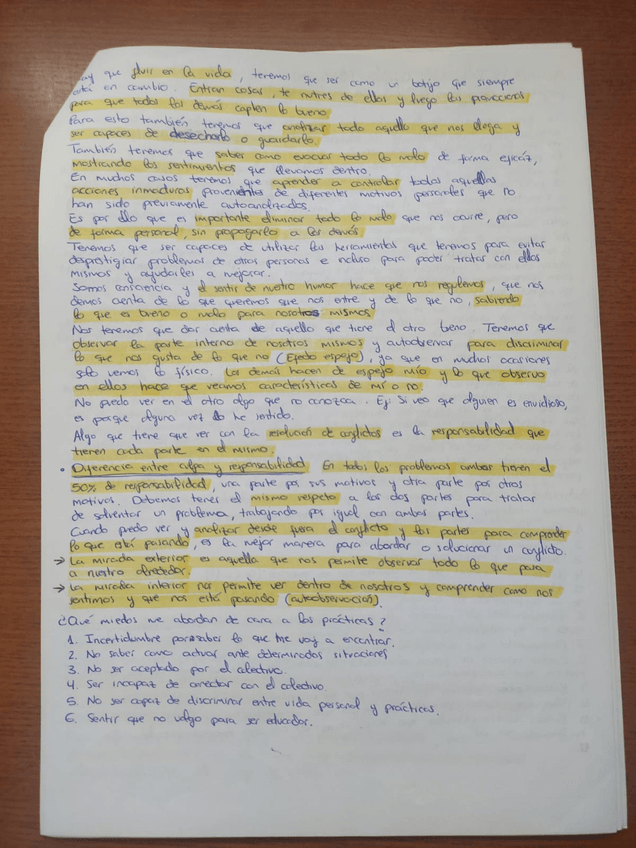 que fluir en la vida, tenemos que ser como un botijo que siempre
está en cambio. Entran cosas, te nutres de ellas y luego las proyeccionas
para que todos los demás capten lo bueno.
Para esto también tenemos que analizar todo aquello que nos llega y
ser capaces de desecharlo o guardarlo.
También tenemos que saber como evacuar todo lo malo de forma eficaz,
mostrando los sentimientos que llevamos dentro.
En muchos casos tenemos que aprender a controlar todas aquellas
acciones inmaduras provenientes de diferentes motivos personales que no
han sido previamente autoanalizados.
Es por ello que es importante eliminar todo lo malo que nos ocurre, pero
de forma personal, sin propagarlo a los demás.
Tenemos que ser capaces de utilizar las herramientas que tenemos para evitar
desprestigiar problemas de otras personas e incluso para poder tratar con ellos
mismos y ayudarles a mejorar.
Somos consciencia y el sentir de nuestro humor hace que nos regulemos, que nos
demos cuenta de lo que queremos que nos entre y de lo que no, sabiendo
lo que es bueno o malo para nosotros mismos.
Nos tenemos que dar cuenta de aquello que tiene el otro bueno. Tenemos que
observar la parte interna de nosotros mismos y autoobservar para discriminar
lo que nos gusta de lo que no (Efecto espejo), ya que en muchas ocasiones
solo vemos lo físico. Los demás hacen de espejo mío y lo que observo
en ellos hace que veamos características de mí o no.
No puedo ver en el otro algo que no conozca. Ej: Si veo que alguien es envidioso,
es porque alguna vez lo he sentido.
Algo que tiene que ver con la resolución de conflictos es la responsabilidad que
tienen cada parte en el mismo.
• Diferencia entre culpa y responsabilidad. En todos los problemas ambos tienen el
50% de responsabilidad, una parte por sus motivos y otra parte por otros
motivos. Debemos tener el mismo respeto a las dos partes para tratar
de solventar un problema, trabajando por igual con ambas partes.
Cuando puedo ver y analizar desde fuera el conflicto y las partes para comprender
lo que está pasando, es la mejor manera para abordar o solucionar un conflicto.
→ La mirada exterior es aquella que nos permite observar todo lo que pasa
a nuestro alrededor.
→ La mirada interior nos permite ver dentro de nosotros y comprender como nos
sentimos y que nos está pasando (autoobservación).
¿Qué miedos me abordan de cara a las prácticas?
1. Incertidumbre por saber lo que me voy a encontrar.
2. No saber como actuar ante determinadas situaciones
3. No ser aceptado por el colectivo.
4. Ser incapaz de conectar con el colectivo.
5. No ser capaz de discriminar entre vida personal y prácticas.
6. Sentir que no valgo para ser educador.